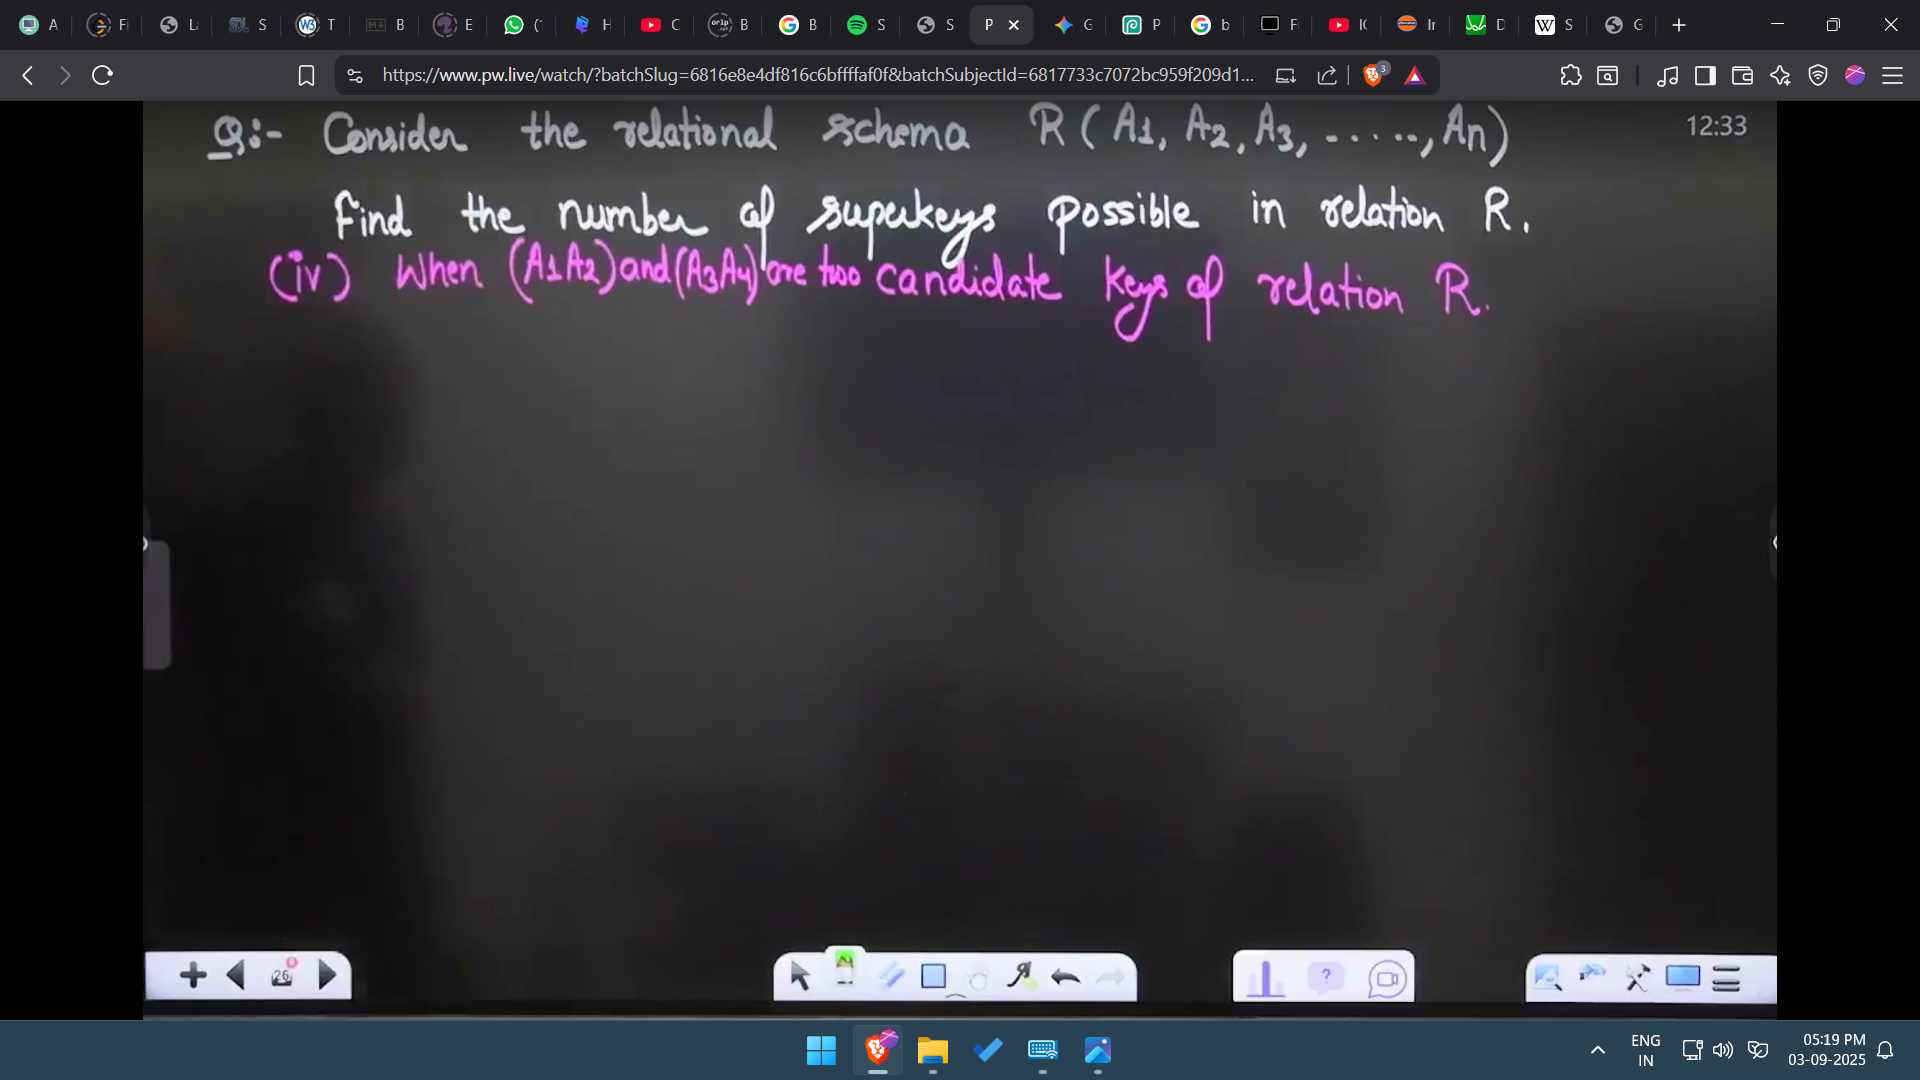 A
Fi
S
T
B
E
H
C
B
B
S
S
P
G
P
b
Fr
IC
Ir
D
S
G
https://www.pw.live/watch/?batchSlug=6816e8e4df816c6bffffaf0f&batchSubjectId=6817733c7072bc959f209d1...
3
Q:- Consider the relational schema R(A1, A2, A3, ....., An)
12:33
Find the number of superkeys possible in relation R.
(iv) When (A1A2) and (A3A4) are two candidate keys of relation R.
26
8
?
ENG
IN
05:19 PM
03-09-2025